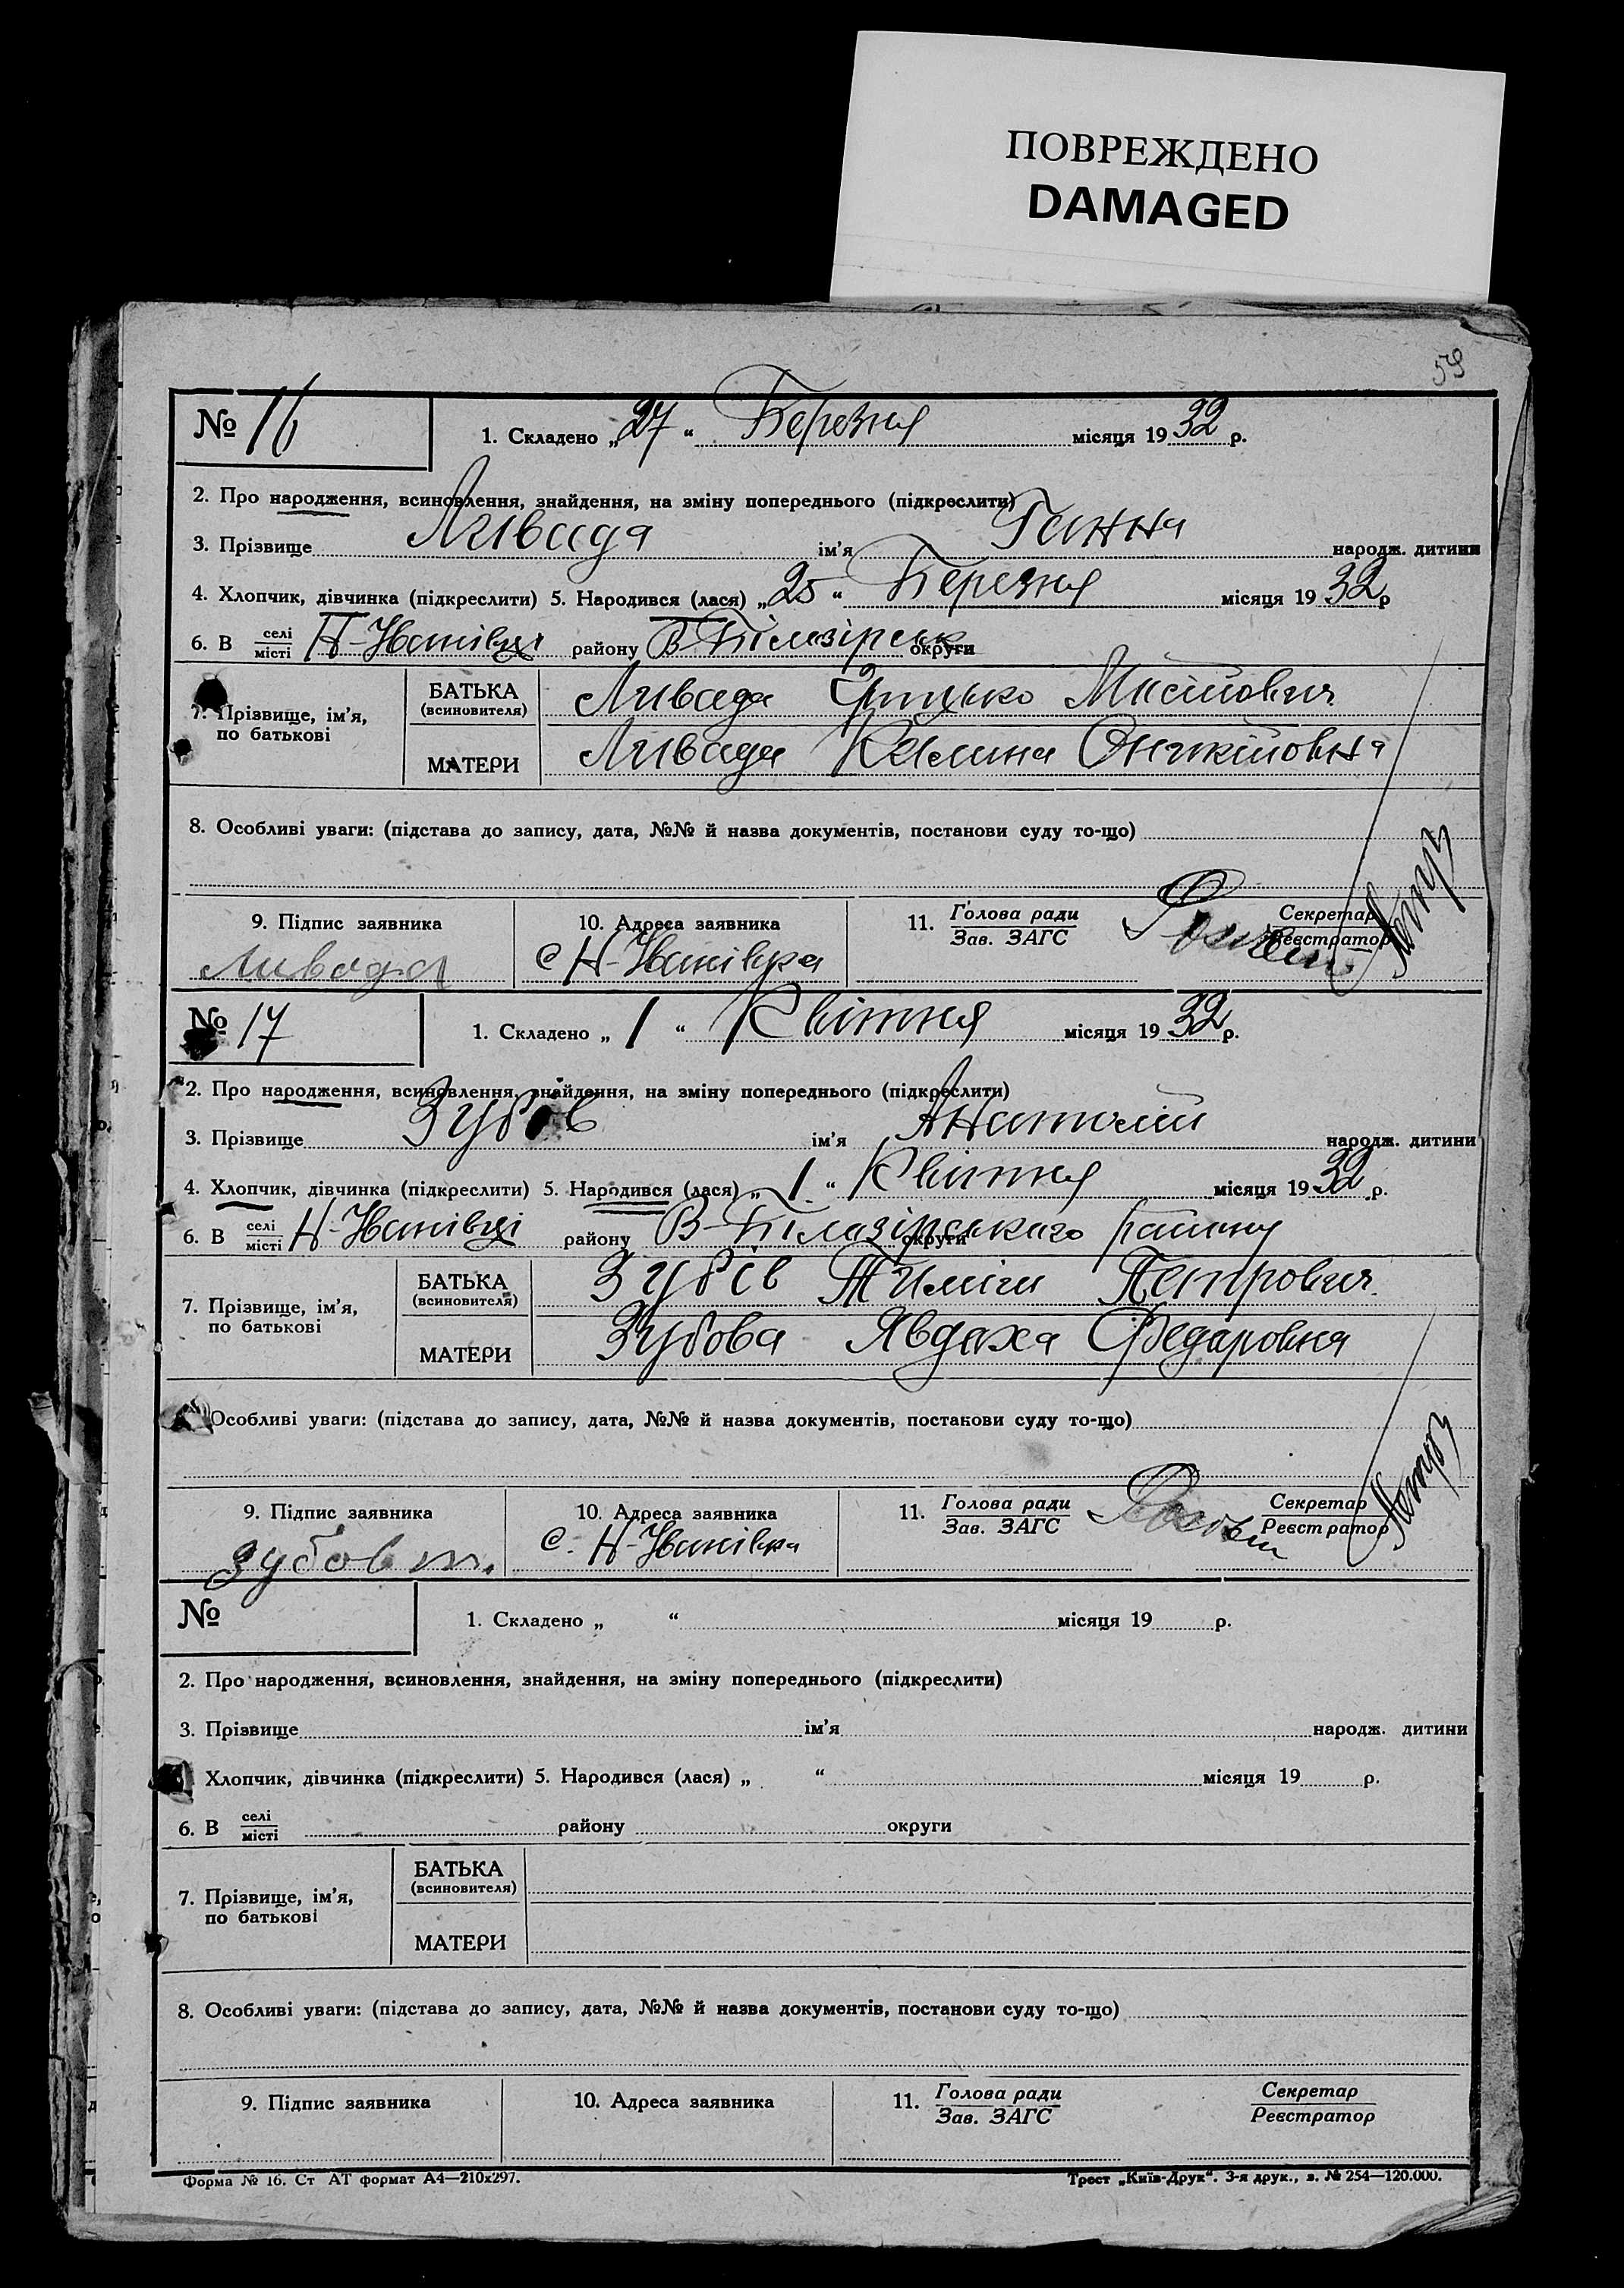 ПОВРЕЖДЕНО
DAMAGED
59
№ 16
1. Складено „27“ Березня місяця 1932 р.
2. Про народження, всиновлення, знайдення, на зміну попереднього (підкреслити)
3. Прізвище Ливада ім’я Ганна народж. дитини
4. Хлопчик, дівчинка (підкреслити) 5. Народився (лася) „25“ Березня місяця 1932 р
6. В селі/місті Н-Іванівці району В-Білозірськ округи
7. Прізвище, ім’я, по батькові
БАТЬКА (всиновителя) Ливада Грицько
МАТЕРИ Ливада Калина Оникіївна
8. Особливі уваги: (підстава до запису, дата, №№ й назва документів, постанови суду то-що)
9. Підпис заявника 10. Адреса заявника 11. Голова ради/Зав. ЗАГС Секретар/Реєстратор
Ливада с Н-Іванівка
№ 17
1. Складено „1“ Квітня місяця 1932 р.
2. Про народження, всиновлення, знайдення, на зміну попереднього (підкреслити)
3. Прізвище Зубов ім’я Анатолій народж. дитини
4. Хлопчик, дівчинка (підкреслити) 5. Народився (лася) „1“ Квітня місяця 1932 р.
6. В селі/місті Н-Іванівці району В-Білозірського округи району
7. Прізвище, ім’я, по батькові
БАТЬКА (всиновителя) Зубів Петрович
МАТЕРИ Зубова Явдаха Федаровна
Особливі уваги: (підстава до запису, дата, №№ й назва документів, постанови суду то-що)
9. Підпис заявника 10. Адреса заявника 11. Голова ради/Зав. ЗАГС Секретар/Реєстратор
Зубов т. с. Н-Іванівка
№
1. Складено „ “ місяця 19 р.
2. Про народження, всиновлення, знайдення, на зміну попереднього (підкреслити)
3. Прізвище ім’я народж. дитини
Хлопчик, дівчинка (підкреслити) 5. Народився (лася) „ “ місяця 19 р.
6. В селі/місті району округи
7. Прізвище, ім’я, по батькові
БАТЬКА (всиновителя)
МАТЕРИ
8. Особливі уваги: (підстава до запису, дата, №№ й назва документів, постанови суду то-що)
9. Підпис заявника 10. Адреса заявника 11. Голова ради/Зав. ЗАГС Секретар/Реєстратор
Форма № 16. Ст АТ формат А4—210х297. Трест „Київ-Друк“. 3-я друк., з. № 254—120.000.